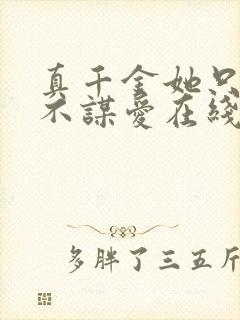 真千金她只
不謀愛在綫
多胖了三五斤